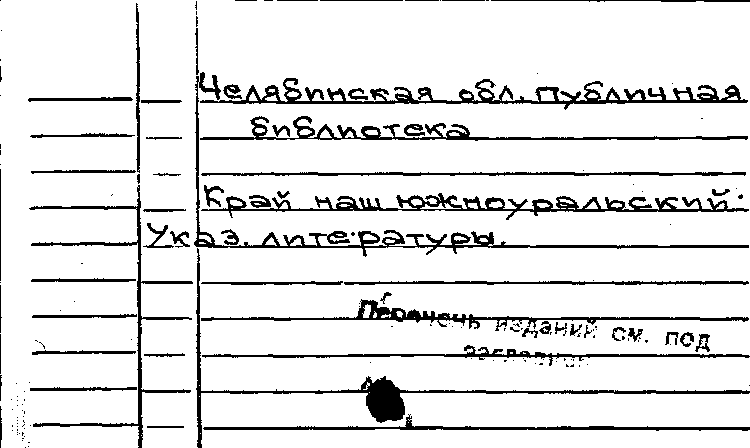 Челябинская обл. публичная
библиотека
Край наш южноуральский.
Указ. литературы.
Перечень изданий см. под
заглавием